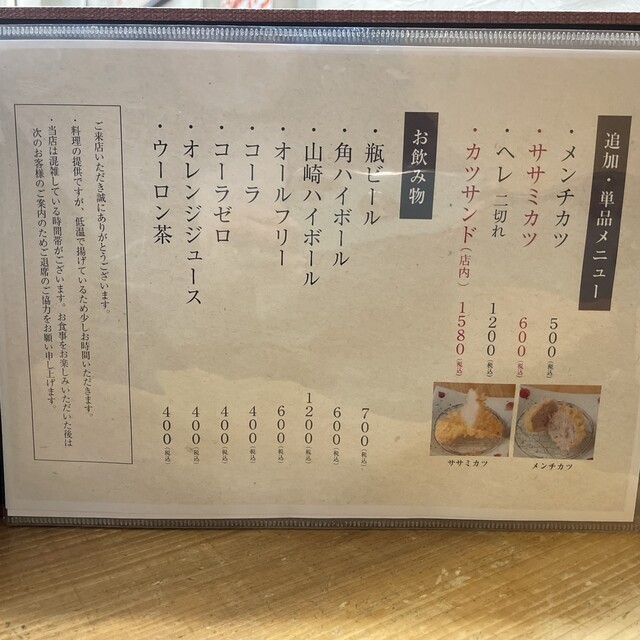 追加・単品メニュー
・メンチカツ 500(税込)
・ササミカツ 600(税込)
・ヘレ 二切れ 1200(税込)
・カツサンド(店内) 1580(税込)
メンチカツ
ササミカツ
お飲み物
・瓶ビール 700(税込)
・角ハイボール 600(税込)
・山崎ハイボール 1200(税込)
・オールフリー 600(税込)
・コーラ 400(税込)
・コーラゼロ 400(税込)
・オレンジジュース 400(税込)
・ウーロン茶 400(税込)
ご来店いただき誠にありがとうございます。
・料理の提供ですが、低温で揚げているため少しお時間いただきます。
・当店は混雑している時間帯がございます。お食事をお楽しみいただいた後は
次のお客様のご案内のためご退席のご協力をお願い申し上げます。